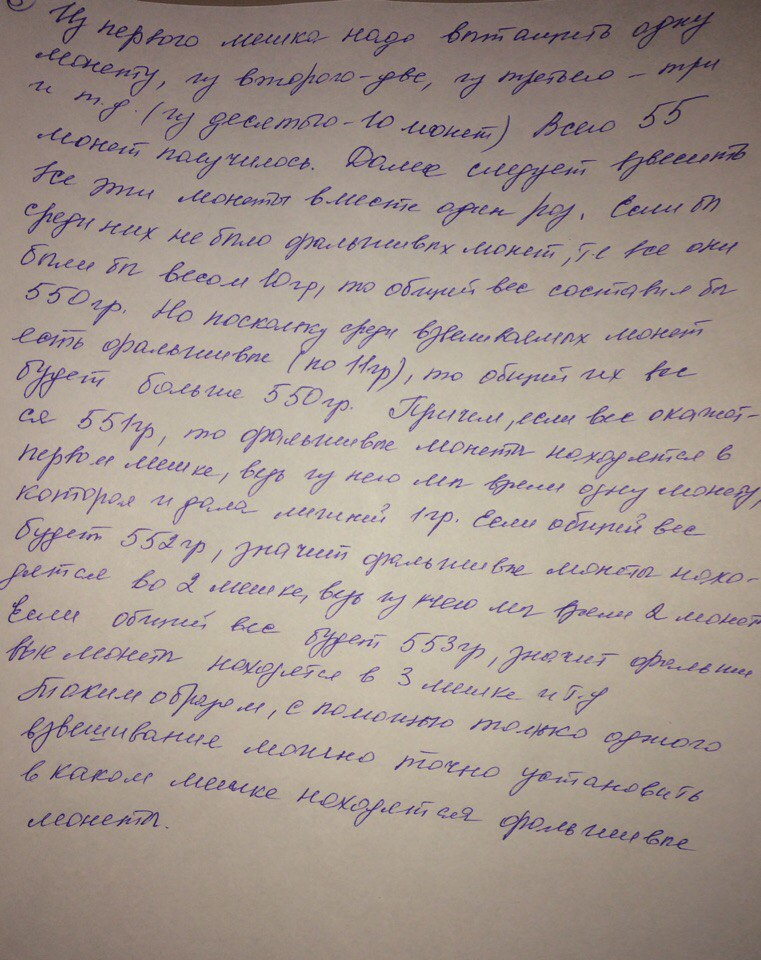 Из первого мешка надо вытащить одну
монету, из второго-две, из третьего - три
и т.д. (из десятого-10 монет) Всего 55
монет получилось. Далее следует взвесить
все эти монеты вместе один раз. Если бы
среди них не было фальшивых монет, т.е все они
были бы весом 10гр, то общий вес составил бы
550гр. Но поскольку среди взвешиваемых монет
есть фальшивые (по 11гр), то общий их вес
будет больше 550гр. Причем, если вес окажет-
ся 551гр, то фальшивые монеты находятся в
первом мешке, ведь из него мы взяли одну монету,
которая и дала лишний 1гр. Если общий вес
будет 552гр, значит фальшивые монеты нахо-
дятся во 2 мешке, ведь из него мы взяли 2 монет
Если общий вес будет 553гр, значит фальши
вые монеты находятся в 3 мешке и т.д
Таким образом, с помощью только одного
взвешивание можно точно установить
в каком мешке находятся фальшивые
монеты.